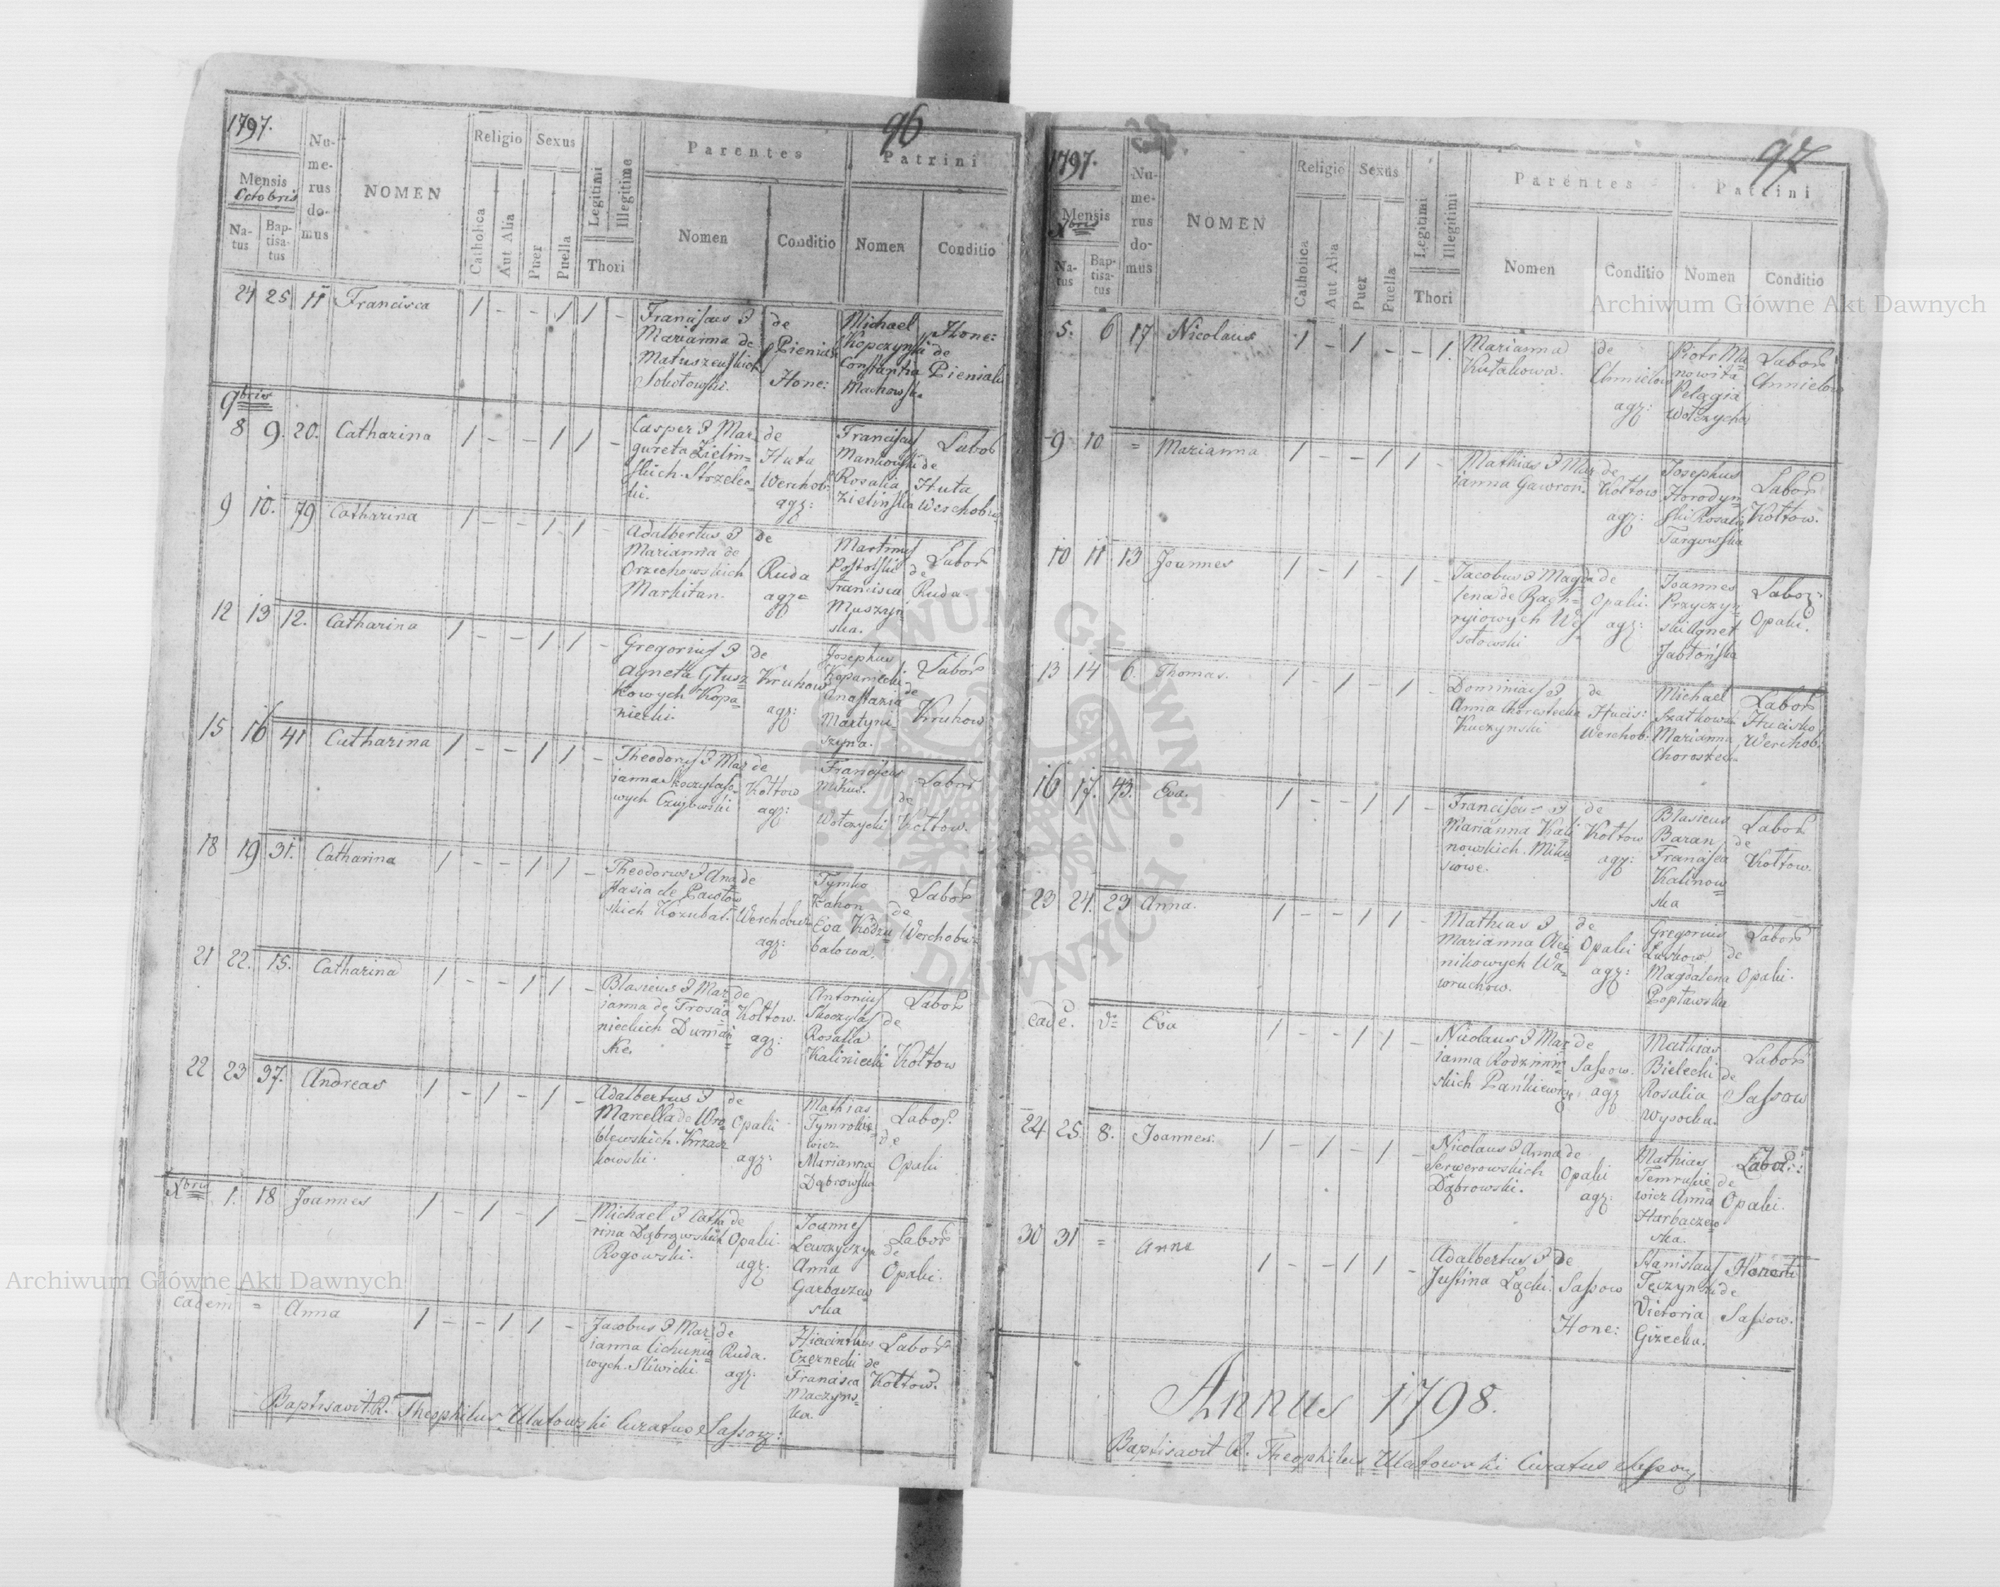 96
1797.
Mensis
Octobris
Na-
tus
Bap-
tisa-
tus
Nu-
me-
rus
do-
mus
NOMEN
Religio
Catholica
Aut Alia
Sexus
Puer
Puella
Legitimi
Illegitime
Thori
Parentes
Nomen
Conditio
Patrini
Nomen
Conditio
24 25 11 Francisca 1 - - 1 1 -
Marianna de
Sokołowski.
de
Hone:
Michael
Constantia
Hone:
de
9bris
8 9. 20. Catharina 1 - - 1 1 -
Casper & Mar
gareta Zielin=
skich Strzelec=
ki.
de
Huta
Werchob:
agr:
Franciscus
Mankowski
Rosalia
Zielińska
Labor:
de
Huta
Werchobuz
9 10. 79 Catharina 1 - - 1 1 -
Adalbertus &
Marianna de
Orzechowskich
Markitan.
de
Ruda
agr=
Martinus
Francisca
Muszyń
ska.
Labor:
de
Ruda
12 13 12. Catharina 1 - - 1 1 -
Gregorius &
Agneta Głusz
kowych Kopa=
niecki.
de
Kruhow
agr:
Josephus
Kopaniecki
Anastazia
Martyni
szyna.
Labor:
de
Kruhow
15 16 41 Catharina 1 - - 1 1 -
Theodorus & Mar
ianna
wych
de
Kołtow
agr:
Franciscus
Mikus.
Wołczycki
Labor:
de
Kołtow.
18 19 31. Catharina 1 - - 1 1 -
Theodorus & Ana
stasia de Pawłow
skich Kozubal
de
Werchobuz
agr:
Tymko
Eva
bałowa.
Labor:
de
Werchobuz
21 22. 15. Catharina 1 - - 1 1 -
Blasius & Mar
ianna de
nieckich
de
Kołtow.
agr:
Antonius
Rosalia
Kaliniecki
Labor:
de
Kołtow
22 23 37. Andreas 1 - 1 - 1 -
Adalbertus &
Marcella de Wro
blewskich Krzasz
kowski.
de
Opaki
agr:
Mathias
Tymrakie=
wicz.
Marianna
Dąbrowska
Labor:
de
Opaki
Xbris
1. 18 Joannes 1 - 1 - 1 -
Michael & Catha
rina Dąbrowskich
Rogowski.
de
Opaki.
agr.
Joannes
Anna
Garbaczew
ska
Labor:
de
Opaki.
eadem = Anna 1 - - 1 1 -
Jacobus & Mar
ianna Cichuniu
wych Sliwicki.
de
Ruda.
agr.
Hiacinthus
Czernecki
Francisca
Maczyns=
ka.
Labor:
de
Kołtow.
Baptisavit R. Theophilus Ulatowski Curatus Sassow:
97
1797.
Mensis
Xbris
Na-
tus
Bap-
tisa-
tus
Nu-
me-
rus
do-
mus
NOMEN
Religio
Catholica
Aut Alia
Sexus
Puer
Puella
Legitimi
Illegitimi
Thori
Parentes
Nomen
Conditio
Patrini
Nomen
Conditio
5. 6 17 Nicolaus 1 - 1 - - 1.
Marianna
de
Chmielow
agr:
Piotr
Pelagia
Labor:
Chmielow
9 10 = Marianna 1 - - 1 1 -
Mathias & Mar
ianna Gawron.
de
Kołtow
agr:
Josephus
Horodyń
ski Rosalia
Targowska
Labor:
Kołtow.
10 11 13 Joannes 1 - 1 - 1 -
Jacobus & Magda
lena de
sołowski
de
Opaki.
agr:
Joannes
Przyczyn
ski Agnet
Jabłońska
Labor:
Opaki.
13 14 6. Thomas. 1 - 1 - 1 -
Anna Chorostecka
Kuczynski
de
Hucis:
Werchob.
Michael
Szatkowski
Marianna
Chorostec=
Labor:
Hucisko
Werchob.
16 17. 43. Eva. 1 - - 1 1 -
Franciscus &
Marianna Kali
nowskich. Miku
siowe.
de
Kołtow
agr:
Blasius
Baran
Francisca
Kalinow=
ska
Labor:
de
Kołtow.
23 24. 29 Anna. 1 - - 1 1 -
Mathias &
Marianna
nikowych Wa=
wruchow.
de
Opaki
agr:
Gregorius
Laskow
Magdalena
Popławska
Labor:
de
Opaki.
eade. Eva 1 - - 1 1 -
Nicolaus & Mar
ianna Rodzinin=
skich Pankiewicz
de
Sassow.
agr
Mathias
Bielecki
Rosalia
Wysocka.
Labor:
de
Sassow
24. 25. 8. Joannes. 1 - 1 - 1 -
Nicolaus & Anna
Serwerowskich
Dąbrowski.
de
Opaki
agr:
Mathias
Temrukie=
wicz Anna
Harbaczew
ska.
Labor:
de
Opaki.
30 31 = Anna 1 - - 1 1 -
Adalbertus &
Justina Lącki.
de
Sassow
Hone:
Stanislaus
Tęczynski
Victoria
Gizecka.
Honesti
de
Sassow.
Annus 1798.
Baptisavit R. Theophilus Ulatowski Curatus
Archiwum Główne Akt Dawnych
Archiwum Główne Akt Dawnych
ARCHIWUM GŁÓWNE AKT DAWNYCH